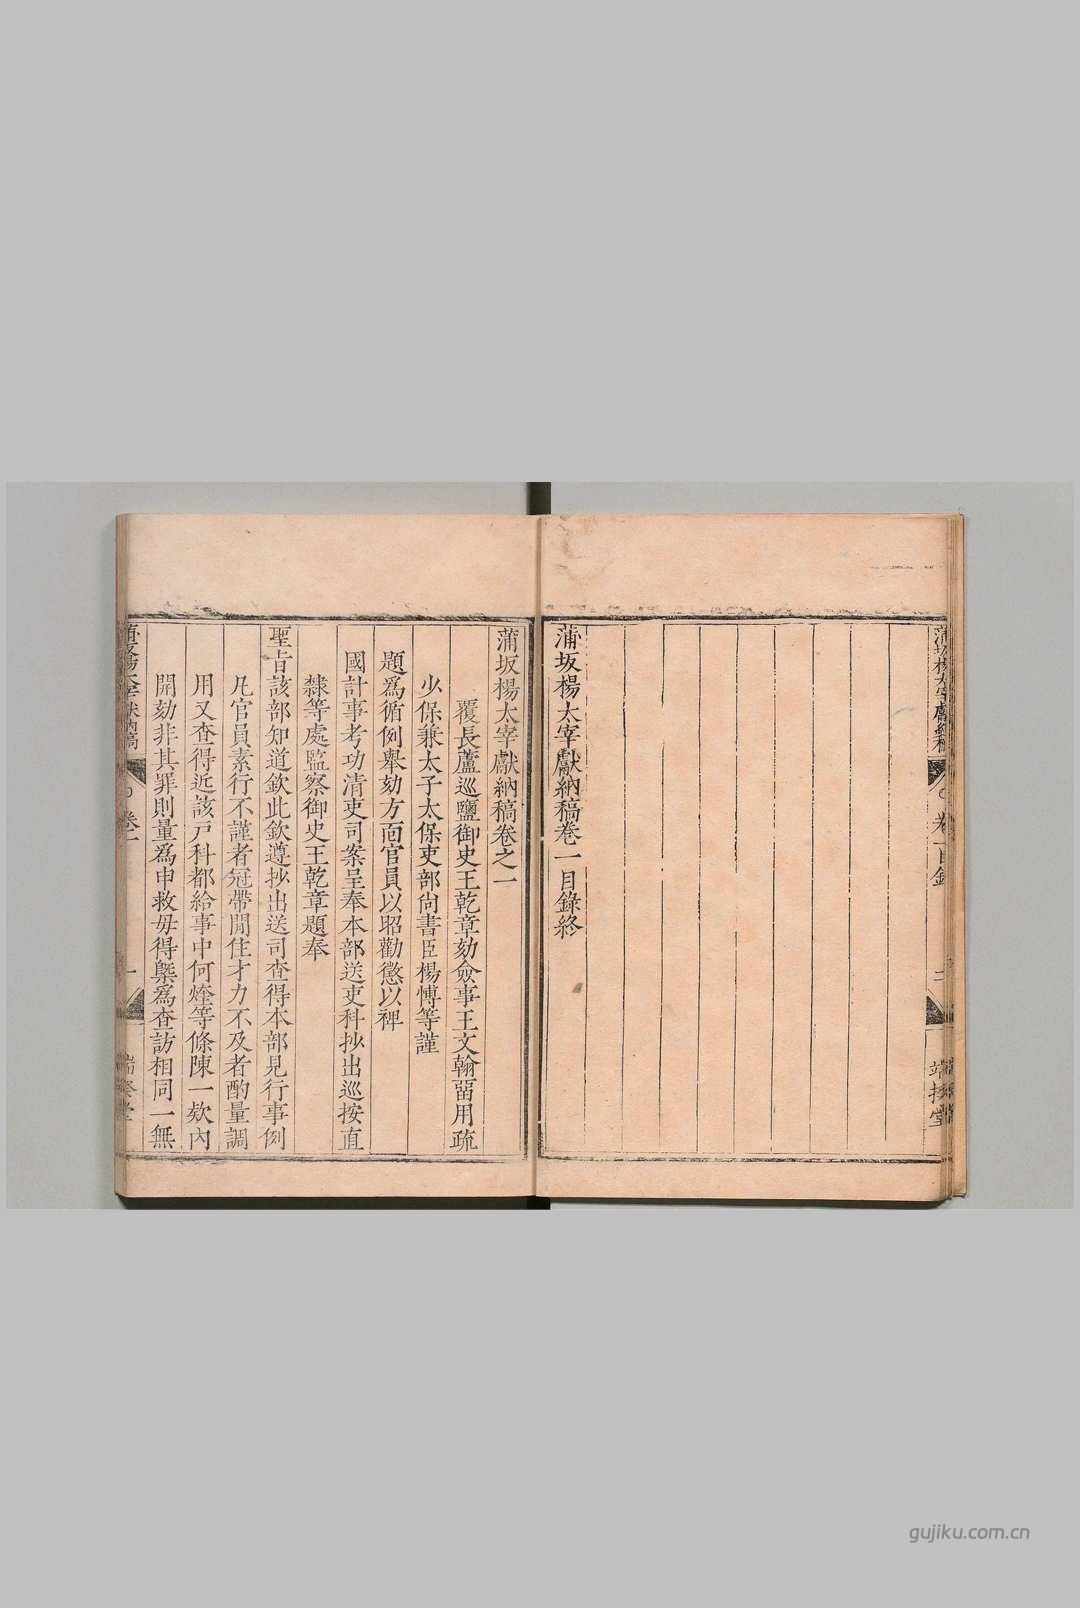 蒲坂楊太宰獻納稿
卷一目錄
二
端揆堂
蒲坂楊太宰獻納稿卷一目錄終
蒲坂楊太宰獻納稿卷之一
覆長蘆巡鹽御史王乾章劾僉事王文翰留用疏
少保兼太子太保吏部尙書臣楊博等謹
題爲循例舉劾方面官員以昭勸懲以裨
國計事考功清吏司案呈奉本部送吏科抄出巡按直
隸等處監察御史王乾章題奉
聖旨該部知道欽此欽遵抄出送司查得本部見行事例
凡官員素行不謹者冠帶閒住才力不及者酌量調
用又查得近該戶科都給事中何煃等條陳一欵內
開劾非其罪則量爲申救毋得槩爲查訪相同一無
卷一
一
gujiku.com.cn